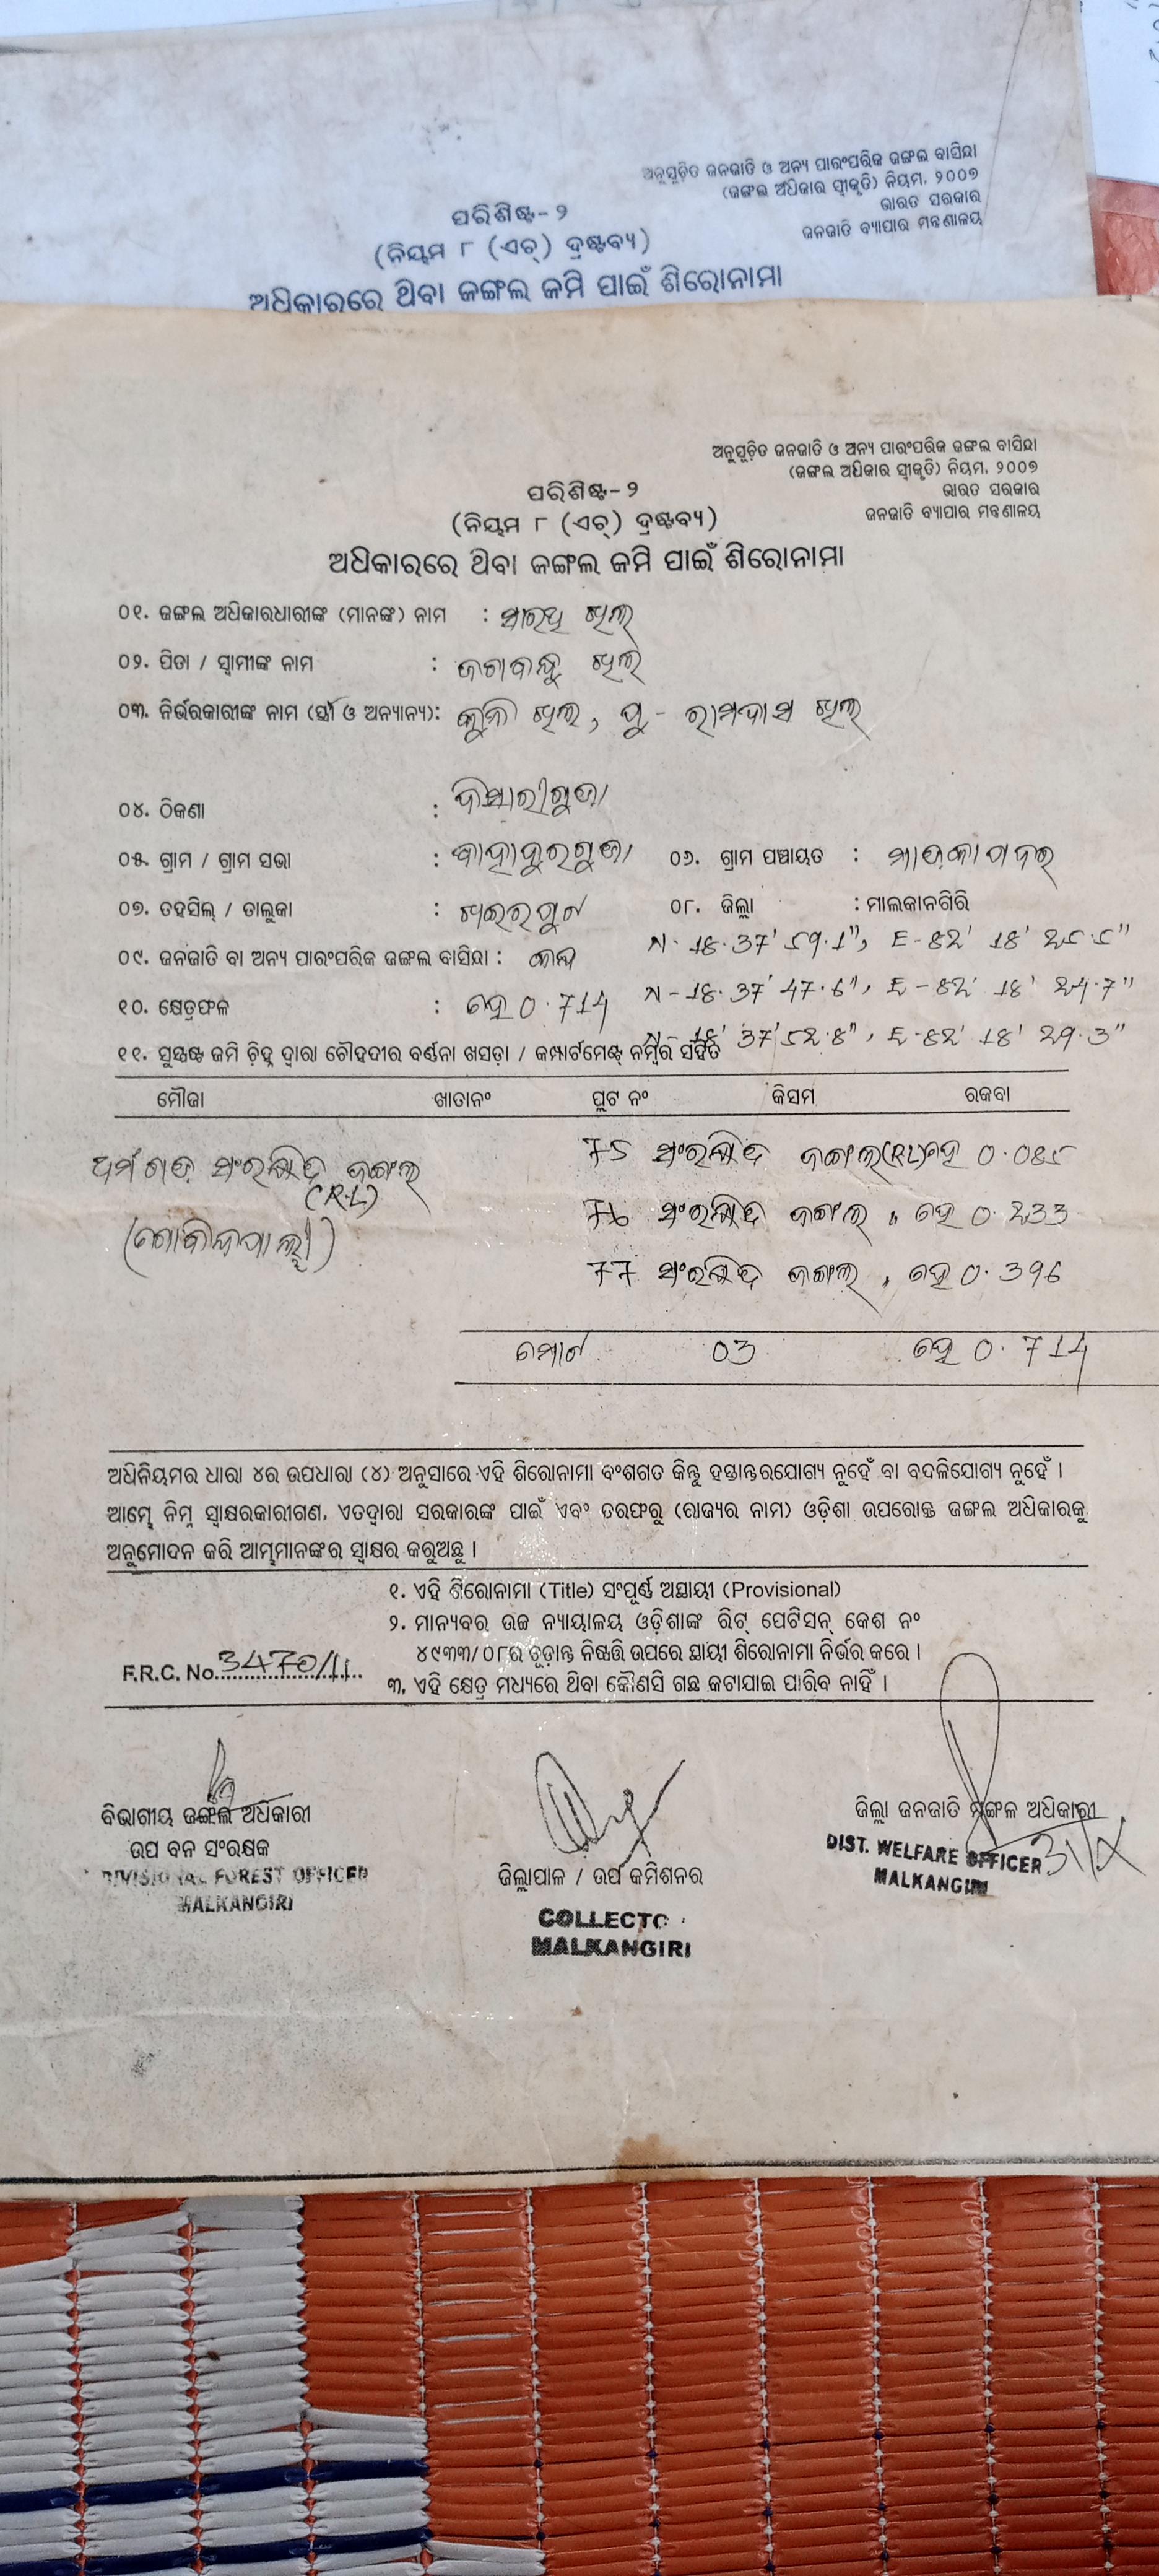 ଅନୁସୂଚିତ ଜନଜାତି ଓ ଅନ୍ୟ ପାରଂପରିକ ଜଙ୍ଗଲ ବାସିନ୍ଦା
(ଜଙ୍ଗଲ ଅଧିକାର ସ୍ୱୀକୃତି) ନିୟମ, ୨୦୦୭
ଭାରତ ସରକାର
ଜନଜାତି ବ୍ୟାପାର ମନ୍ତ୍ରଣାଳୟ
ପରିଶିଷ୍ଟ-୨
(ନିୟମ ୮ (ଏଚ୍) ଦ୍ରଷ୍ଟବ୍ୟ)
ଅଧିକାରରେ ଥିବା ଜଙ୍ଗଲ ଜମି ପାଇଁ ଶିରୋନାମା
ଅନୁସୂଚିତ ଜନଜାତି ଓ ଅନ୍ୟ ପାରଂପରିକ ଜଙ୍ଗଲ ବାସିନ୍ଦା
(ଜଙ୍ଗଲ ଅଧିକାର ସ୍ୱୀକୃତି) ନିୟମ, ୨୦୦୭
ଭାରତ ସରକାର
ଜନଜାତି ବ୍ୟାପାର ମନ୍ତ୍ରଣାଳୟ
ପରିଶିଷ୍ଟ-୨
(ନିୟମ ୮ (ଏଚ୍) ଦ୍ରଷ୍ଟବ୍ୟ)
ଅଧିକାରରେ ଥିବା ଜଙ୍ଗଲ ଜମି ପାଇଁ ଶିରୋନାମା
୦୧. ଜଙ୍ଗଲ ଅଧିକାରଧାରୀଙ୍କ (ମାନଙ୍କ) ନାମ :
୦୨. ପିତା / ସ୍ୱାମୀଙ୍କ ନାମ : ଜଗବନ୍ଧୁ
୦୩. ନିର୍ଭରକାରୀଙ୍କ ନାମ (ସ୍ତ୍ରୀ ଓ ଅନ୍ୟାନ୍ୟ): ପୁ - ରାମଦାସ
୦୪. ଠିକଣା :
୦୫. ଗ୍ରାମ / ଗ୍ରାମ ସଭା : ବାହାଦୁରଗୁଡା ୦୬. ଗ୍ରାମ ପଞ୍ଚାୟତ :
୦୭. ତହସିଲ୍ / ତାଲୁକା : ଖଇରପୁଟ ୦୮. ଜିଲ୍ଲା : ମାଲକାନଗିରି
N- 18. 37' 59.1", E- 82' 18' 25.5"
୦୯. ଜନଜାତି ବା ଅନ୍ୟ ପାରଂପରିକ ଜଙ୍ଗଲ ବାସିନ୍ଦା :
N- 18. 37' 47.6", E - 82' 18' 24.7"
୧୦. କ୍ଷେତ୍ରଫଳ : ହେ 0.714
N- 18' 37' 52.8", E- 82' 18' 29.3"
୧୧. ସୁସ୍ପଷ୍ଟ ଜମି ଚିହ୍ନ ଦ୍ୱାରା ଚୌହଦୀର ବର୍ଣ୍ଣନା ଖସଡ଼ା / କମ୍ପାର୍ଟମେଣ୍ଟ୍ ନମ୍ବର ସହିତ
ମୌଜା ଖାତାନଂ ପ୍ଲଟ ନଂ କିସମ ରକବା
75 ସଂରକ୍ଷିତ ଜଙ୍ଗଲ(RL) ହେ 0.085
ଧର୍ମଗଡ଼ ସଂରକ୍ଷିତ ଜଙ୍ଗଲ
(R.L)
76 ସଂରକ୍ଷିତ ଜଙ୍ଗଲ, ହେ 0.233
(ଗୋବିନ୍ଦପାଲ୍ଲୀ)
77 ସଂରକ୍ଷିତ ଜଙ୍ଗଲ, ହେ 0.396
ମୋଟ 03 ହେ 0.714
ଅଧିନିୟମର ଧାରା ୪ର ଉପଧାରା (୪) ଅନୁସାରେ ଏହି ଶିରୋନାମା ବଂଶଗତ କିନ୍ତୁ ହସ୍ତାନ୍ତରଯୋଗ୍ୟ ନୁହେଁ ବା ବଦଳିଯୋଗ୍ୟ ନୁହେଁ ।
ଆମ୍ଭେ ନିମ୍ନ ସ୍ୱାକ୍ଷରକାରୀଗଣ, ଏତଦ୍ୱାରା ସରକାରଙ୍କ ପାଇଁ ଏବଂ ତରଫରୁ (ରାଜ୍ୟର ନାମ) ଓଡ଼ିଶା ଉପରୋକ୍ତ ଜଙ୍ଗଲ ଅଧିକାରକୁ
ଅନୁମୋଦନ କରି ଆମ୍ଭମାନଙ୍କର ସ୍ୱାକ୍ଷର କରୁଅଛୁ ।
୧. ଏହି ଶିରୋନାମା (Title) ସଂପୂର୍ଣ୍ଣ ଅସ୍ଥାୟୀ (Provisional)
୨. ମାନ୍ୟବର ଉଚ୍ଚ ନ୍ୟାୟାଳୟ ଓଡ଼ିଶାଙ୍କ ରିଟ୍ ପେଟିସନ୍ କେଶ ନଂ
୪୯୩୩/୦୮ର ଚୂଡ଼ାନ୍ତ ନିଷ୍ପତ୍ତି ଉପରେ ସ୍ଥାୟୀ ଶିରୋନାମା ନିର୍ଭର କରେ ।
F.R.C. No. 3470/11
୩. ଏହି କ୍ଷେତ୍ର ମଧ୍ୟରେ ଥିବା କୌଣସି ଗଛ କଟାଯାଇ ପାରିବ ନାହିଁ ।
ବିଭାଗୀୟ ଜଙ୍ଗଲ ଅଧିକାରୀ
ଉପ ବନ ସଂରକ୍ଷକ
DIVISIONAL FOREST OFFICER
MALKANGIRI
ଜିଲ୍ଲାପାଳ / ଉପ କମିଶନର
COLLECTOR
MALKANGIRI
ଜିଲ୍ଲା ଜନଜାତି ମଙ୍ଗଳ ଅଧିକାରୀ
DIST. WELFARE OFFICER
MALKANGIRI